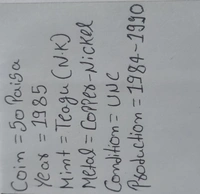 Coin = 50 Paisa
Year = 1985
Mint = Teagu (N.K)
Metal = Copper-Nickel
Condition = UNC
Production = 1984-1990